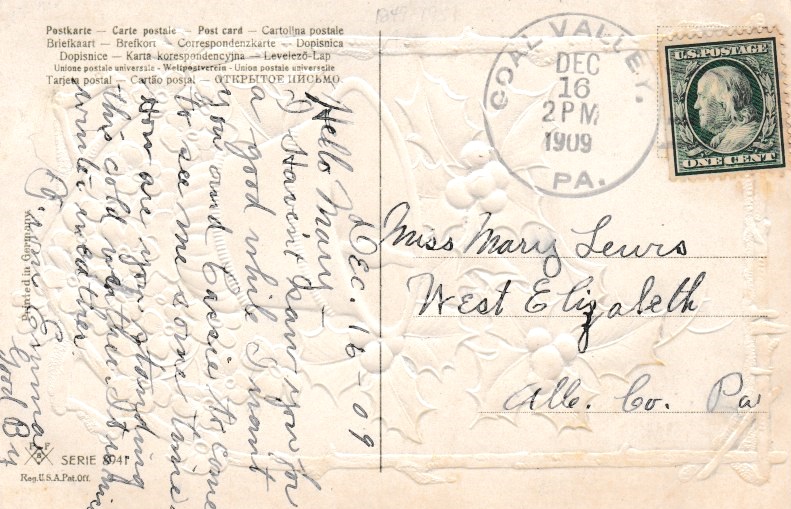 Postkarte — Carte postale — Post card — Cartolina postale
Briefkaart — Brefkort — Correspondenzkarte — Dopisnica
Dopisnice — Karta korespondencyjna — Levelező-Lap
Unione postale universale - Weltpostverein - Union postale universelle
Tarjeta postal — Cartão postal — ОТКРЫТОЕ ПИСЬМО
COAL VALLEY,
DEC
16
2 PM
1909
PA.
U.S. POSTAGE
ONE CENT
Dec. 16 - 09
Hello Mary
I Haven't saw you for
a good while I want
you and Cassie to come
to see me some time
How are you standing
this cold weather
winter weather.
From Emma
Good By
Miss Mary Lewis
West Elizabeth
Alle. Co. Pa
Printed in Germany
P F
B
SERIE 8941
Reg. U.S.A. Pat. Off.